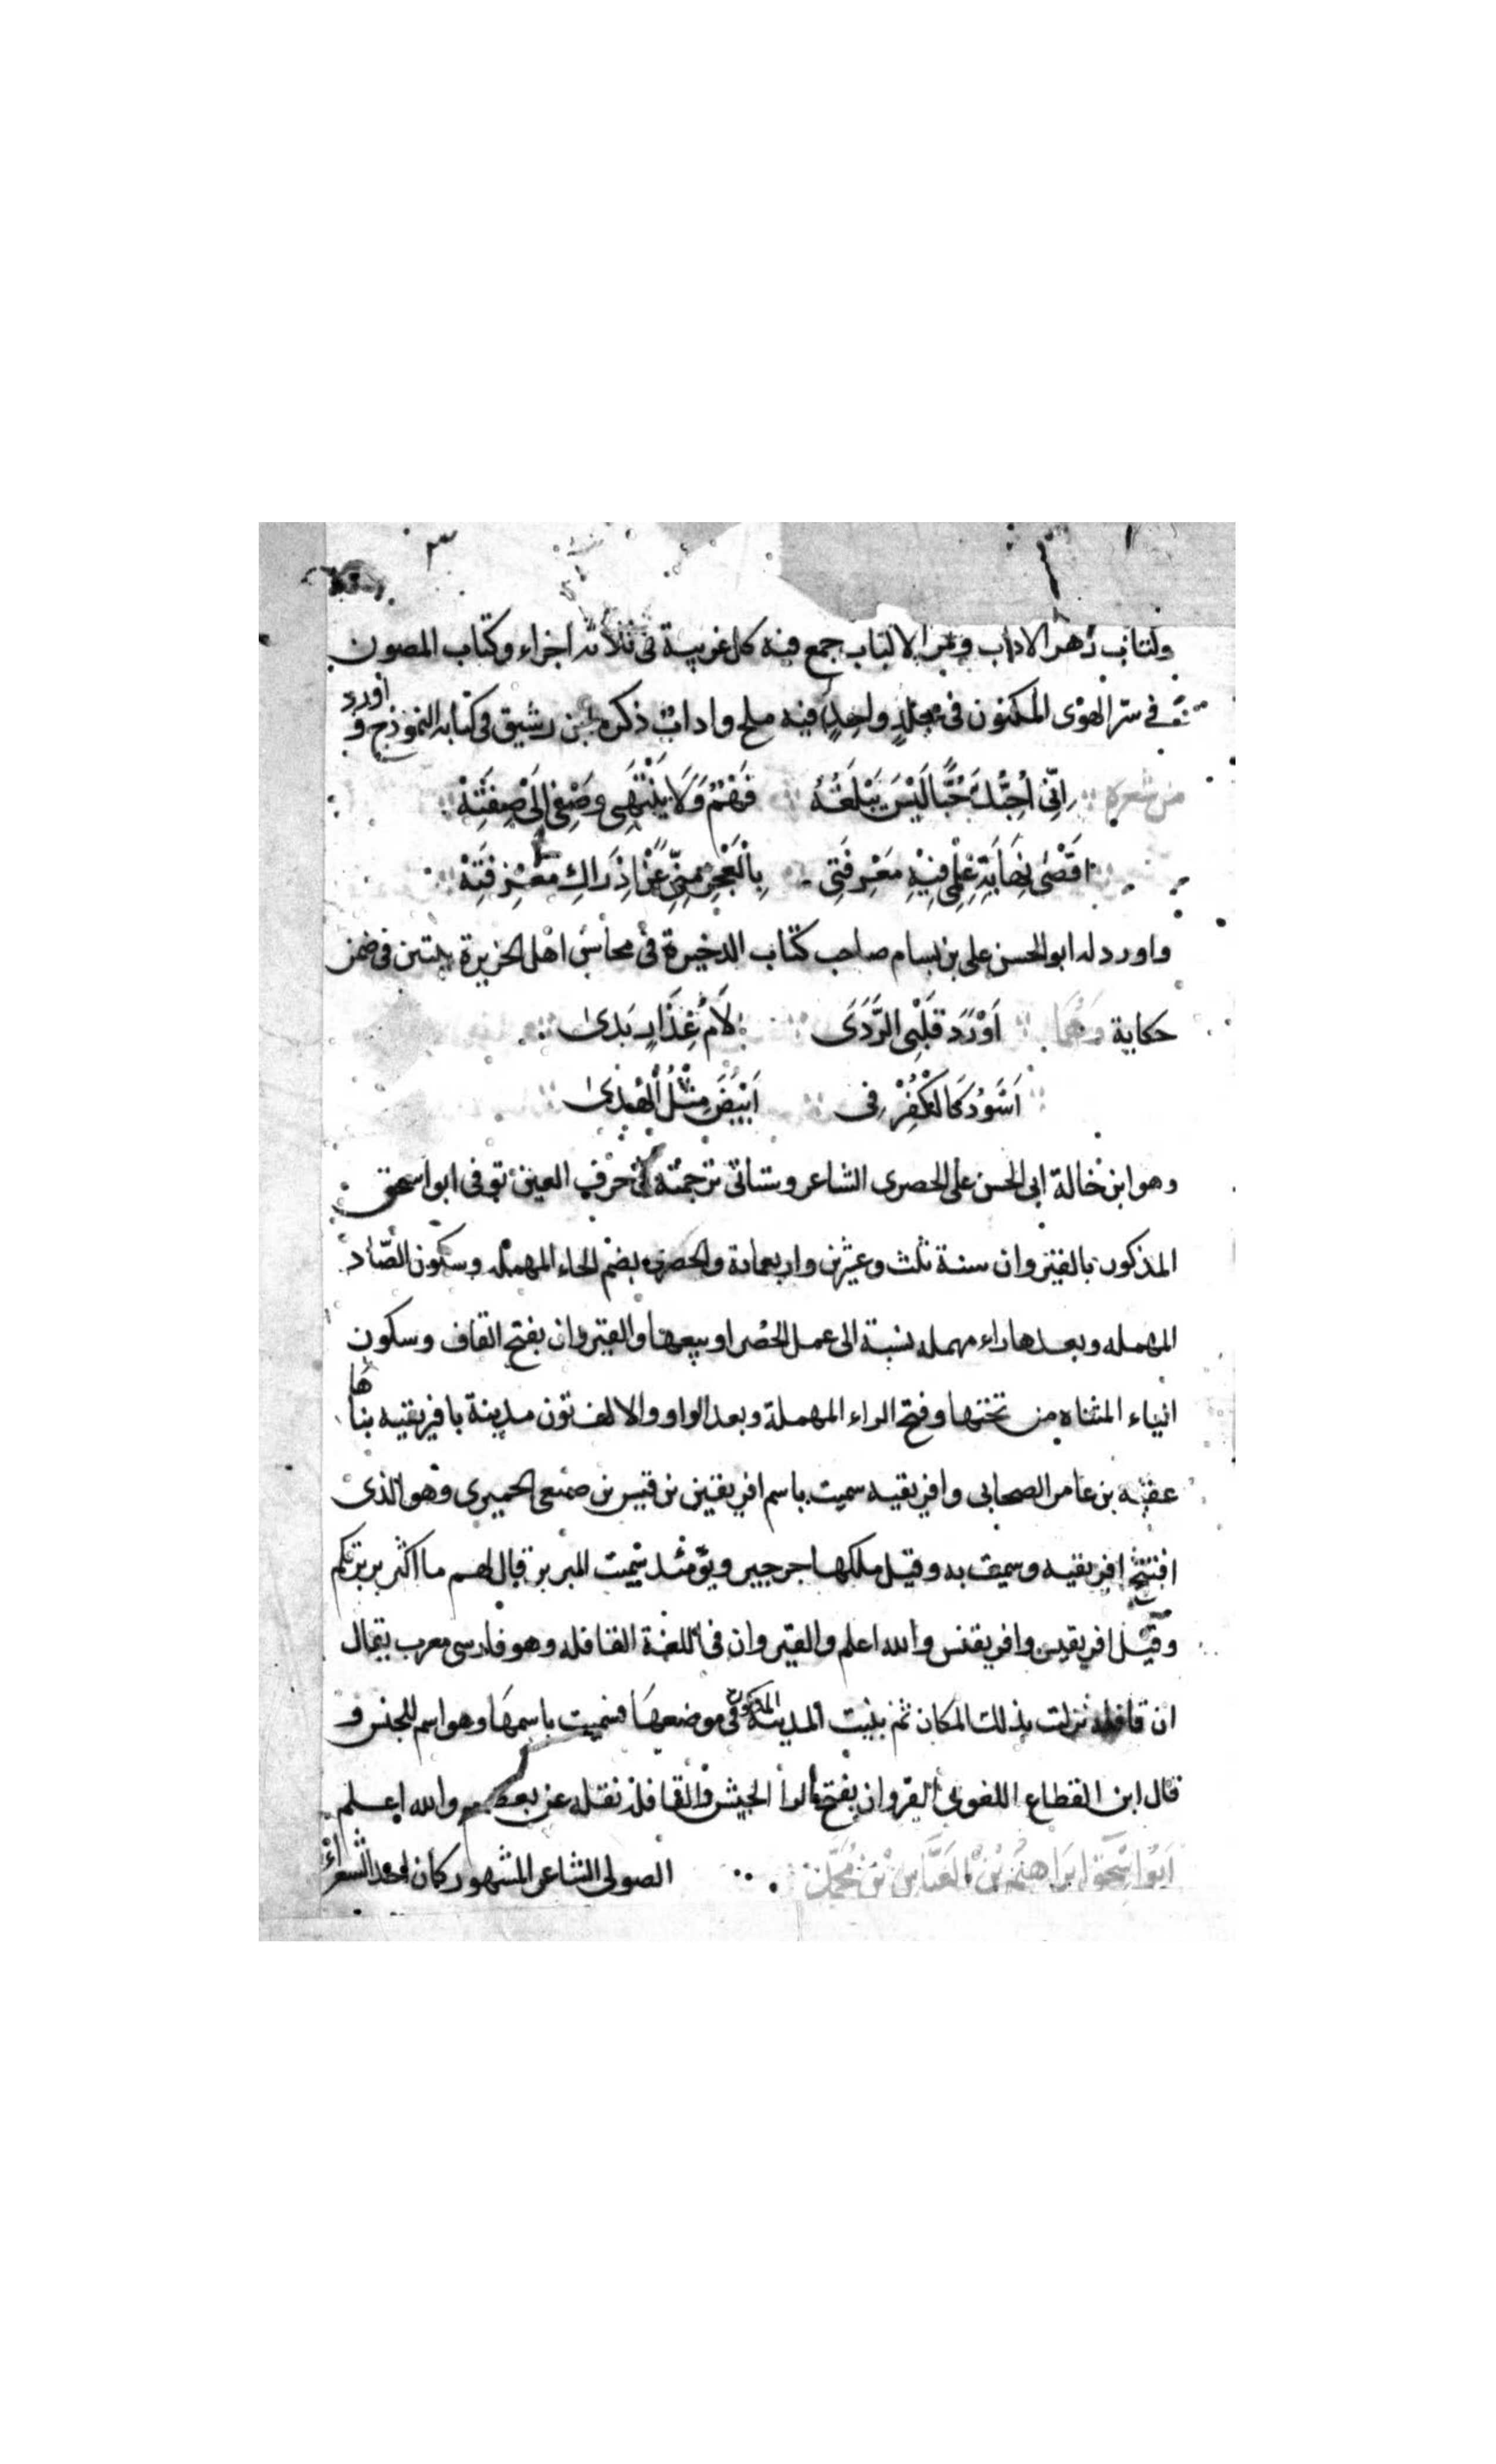 وكتاب زهر الاداب وثمر الالباب جمع فيه كل غريبة فى ثلاثه اجزاء وكتاب المصون
فى سرّ الهوى المكنون فى مجلدٍ واحدٍ فيه ملح واداب ذكره ابن رشيق فى كتابه النموذج و اورد
من شعره اِنّى اُحِبُّكَ حُبًّا لَيْسَ يَبْلُغُهُ فَهْمٌ وَلَا يَنْتَهِى وَصْفِى اِلَى صِفَتِهْ
اقْصَى نِهَايَةِ عِلْمِى فِيْهِ مَعْرِفَتِى بِالْعَجْزِ مِنِّى عَنْ اِدْرَاكِ مَعْرِفَتِهْ
واورد له ابو الحسن على بن بسام صاحب كتاب الذخيرة فى محاسن اهل الجزيرة بيتين فى ضمن
حكاية وَهُمَا اَوْرَدَ قَلْبِى الرَّدَى لَامُ عِذَارٍ بَدَى
اَسْوَدُ كَالْكُفْرِ فى اَبْيَضَ مِثْلُ الْهُدىٰ
وهو ابن خالة ابى الحسن على الحصرى الشاعر وستاتى ترجمته فى حرف العين توفى ابو اسحق
المذكور بالقيروان سنة ثلث وعشرين واربعمادة والحصرى بضم الحاء المهمله وسكون الصّاد
المهمله وبعدها راء مهمله نسبة الى عمل الحُصر او بيعها والقيروان بفتح القاف وسكون
الياء المثناه من تحتها وفتح الراء المهملة وبعد الواو والالف نون مدينة بافريقيه بناها
عقبه بن عامر الصحابى وافريقيه سميت باسم افريقين بن قيس بن صيفى الحميرى وهو الذى
افتتح افريقيه وسميت به وقيل ملكها جرجير ويومئذ سُمّيت البربر قال لهم ما اكثر بربرتكم
وقيل افريقيس وافريقنس والله اعلم والقيروان فى اللغة القافله وهو فارسى معرب يقال
ان قافلة نزلت بذلك المكان ثم بنيت المدينة المذكورة فى موضعها فسميت باسمها وهو اسم للجنس و
قال ابن القطاع اللغوى القيروان بفتح الراء الجيش والقافلة نقله عن بعضهم والله اعلم
اَبُو اِسْحٰق اِبْرَاهِيْمُ بْنُ الْعَبَّاسِ بْنِ مُحَمَّد الصولى الشاعر المشهور كان احد الشعراء